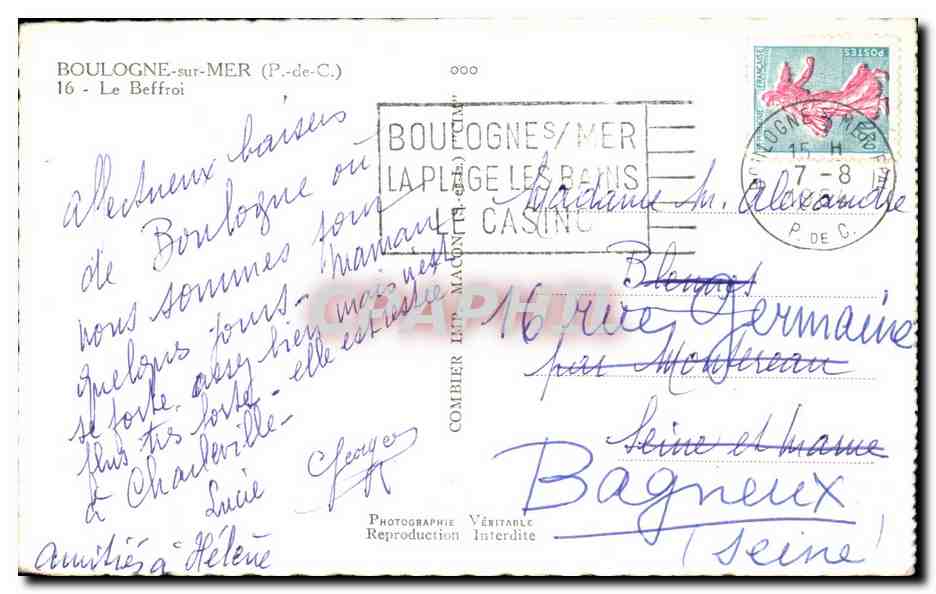 BOULOGNE-sur-MER (P.-de-C.)
16 - Le Beffroi
Affectueux baisers
de Boulogne où
nous sommes pour
quelques jours - maman
se porte assez bien mais n'est
plus très forte - elle est restée
à Charleville -
Lucie Georges
Amitiés à Hélène
COMBIER IMP. MACON (S.-et-L.) "CIM"
PHOTOGRAPHIE VÉRITABLE
Reproduction Interdite
BOULOGNE S/MER
LA PLAGE LES BAINS
LE CASINO
POSTES
FRANÇAISE
BOULOGNE S MER
15 H
7 - 8
P. DE C.
Madame M. Alexandre
Blennes
16 rue Germaine
par Montereau
Seine et marne
Bagneux
(Seine)
CPAPHIL